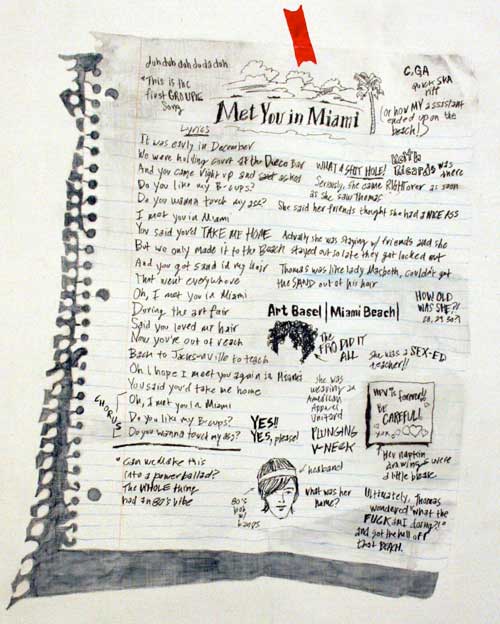 duh duh dah du da dah
*This is the
first GROUPIE
Song
Met You in Miami
C, GA
quick SKA
riff
(or how MY assistant
ended up on the
beach!)
Lyrics
It was early in December
We were holding court at the Deuce Bar
And you came right up and asked
Do you like my B-cups?
Do you wanna touch my ass?
I met you in Miami
You said you'd TAKE ME HOME
But we only made it to the Beach
And you got sand in my hair
That went everywhere
Oh, I met you in Miami
During the art fair
Said you loved my hair
Now you're out of reach
Back to Jacksonville to teach
Oh I hope I meet you again in Miami
You said you'd take me home
CHORUS
Oh, I met you in Miami
Do you like my B-cups?
Do you wanna touch my ass?
WHAT A SHOT HOLE!
was there
Seriously, she came RIGHT over as soon
as she saw Thomas
She said her friends thought she had A NICE ASS
Actually she was staying w/ friends and she
stayed out so late they got locked out
Thomas was like lady Macbeth, couldn't get
the SAND out of his hair
Art Basel | Miami Beach |
HOW OLD
WAS SHE?!
28, 29 30?!
The
FRO DID IT
ALL
She was a SEX-ED
teacher!!
She was
wearing an
American
Apparel
Unitard
PLUNGING
V-NECK
HPV is forever!!
BE
CAREFUL!
xxx
Her napkin
drawings were
a little bleak
YES!!
YES, please!
*Can we Make this
into a power ballad?
The WHOLE thing
had an 80's vibe
80's
look
w/
bangs
headband
What was her
name?
Ultimately, Thomas
wondered "what the
FUCK am I doing?!"
and got the hell off
that BEACH.